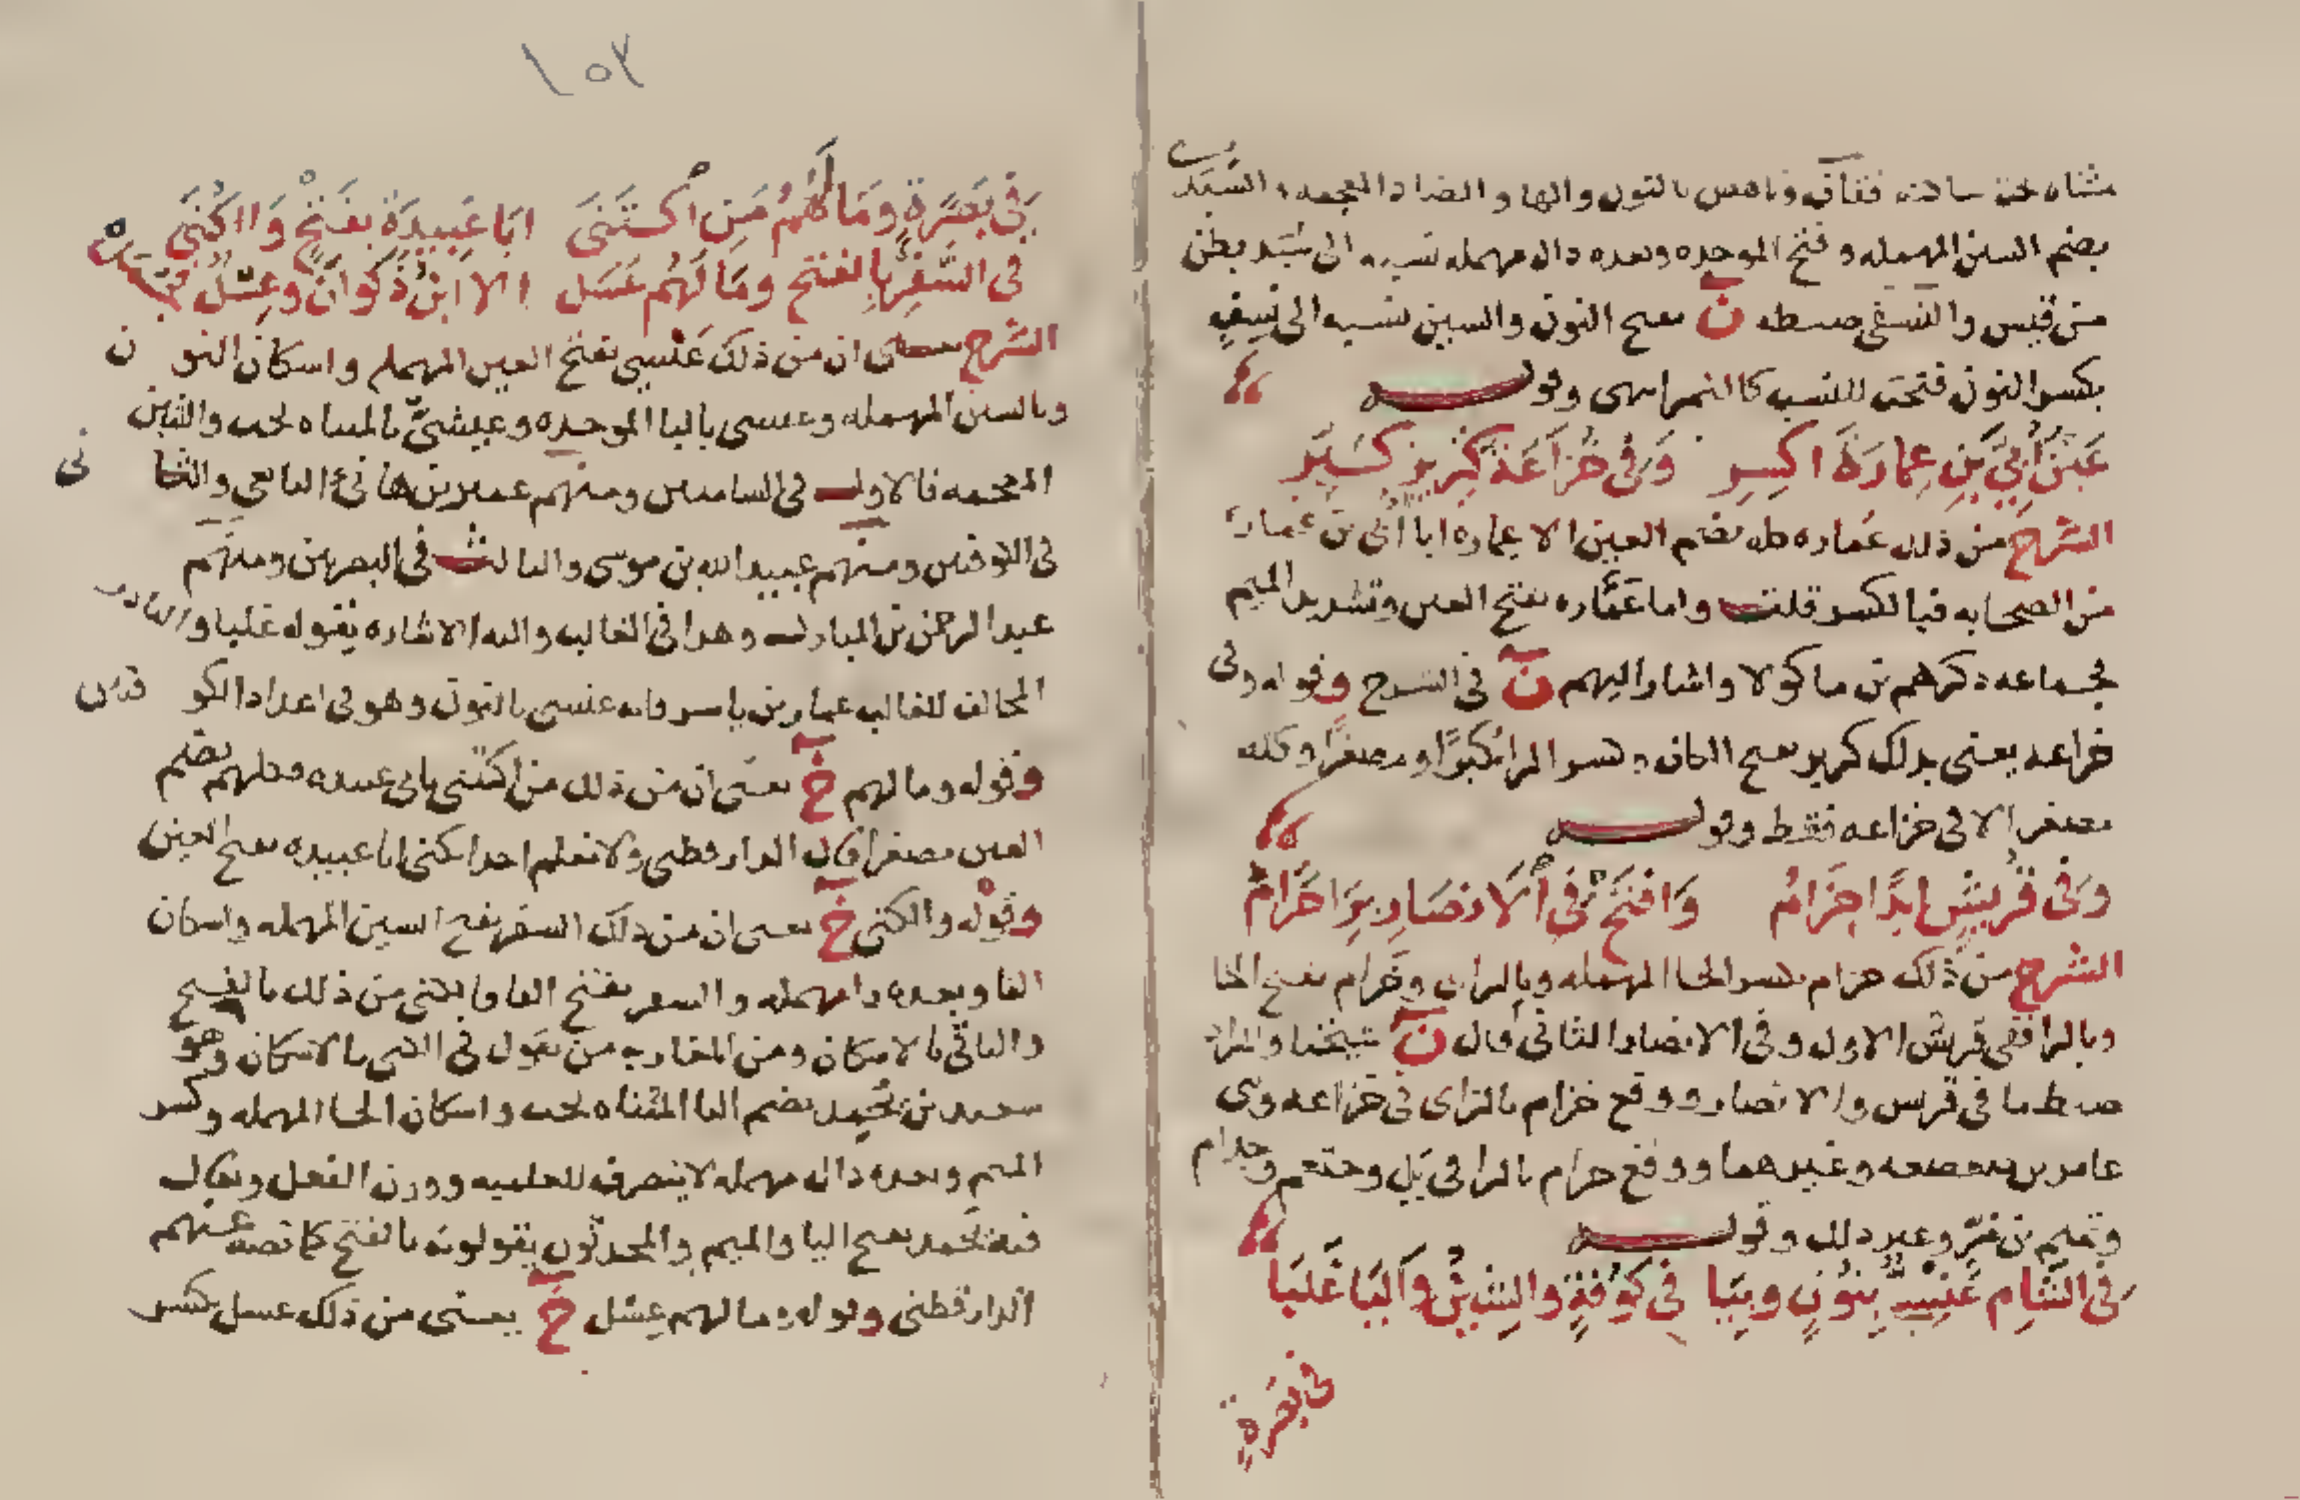 مثناه تحت ساكنه فقاف وناهس بالنون والها والضاد المعجمه والسبدى
بضم السين المهمله وفتح الموحده وبعده دال مهمله نسبه الى سُبَد بطن
من قيس والنسفى ضبطه نَ بفتح النون والسين نسبه الى نسِف
بكسر النون فتحت للنسب كالنمرى وقوله
عَيْنَ أُبَيِّ بْنِ عِمارَةَ اكسِرِ وَفى خُزَاعَةَ كَرِيز كَبِّرِ
الشرح من ذلك عُماره كله بضم العين الا عِماره ابا ابى بن عماره
من الصحابه فبالكسر قلت واما عَمَّاره بفتح العين وتشديد الميم
فجماعه ذكرهم بن ماكولا واشار اليهم نَ فى الشرح وقوله وفى
خزاعه يعنى بذلك كريز بفتح الكاف وكسر الرا مكبرًا ومصغرًا وكله
مصغر الا فى خزاعه فقط وقوله
وَفى قُرَيشٍ ابدًا حِزَامُ وَافتَحْ فِى الَانصَارِ بِرَا حَرَامُ
الشرح من ذلك حزام بكسر الحا المهمله وبالزاى وحَرام بفتح الحا
وبالرا ففى قريش الاول وفى الانصار الثانى قال نَ شيخنا والمراد
ضبط ما فى قريش والانصار ووقع حزام بالزاى فى خزاعه وبنى
عامر بن صعصعه وغيرهما ووقع حرام بالرا فى بَلِى وخثعم وجذام
وتميم بن مُرّ وغير ذلك وقوله
فِى الشَّامِ عَنْسِىٌّ بِنُونٍ وبِبَا فِى كُوفَةٍ والشِّينُ وَاليَا غَلَبَا
فى بَصْرةٍ
١٥٢
فِى بَصْرَةٍ وَمَا لَهُمْ مَنِ اكْتَنَى ابَا عَبِيدَةٍ بفَتْحٍ وَالكُنَى
فى السَّفْرِ بالفتحِ ومَا لَهُم عَسَل الا ابنُ ذَكْوانَ وعِسْلٌ
الشرح يعنى ان من ذلك عَنْسِى بفتح العين المهمله واسكان النون
وبالسين المهمله وعبسى بالبا الموحده وعيشىّ بالمثناه تحت والشين
المعجمه فالاول فى الشاميين ومنهم عمير بن هانئ التابعى والثانى
فى الكوفيين ومنهم عبيد الله بن موسى والثالث فى البصريين ومنهم
عبد الرحمن بن المبارك وهذا فى الغالب واليه الاشاره بقوله غلبا والنادر
المخالف للغالب عمار بن ياسر فانه عنسى بالنون وهو فى اعداد الكوفيين
وقوله وما لهم خَ يعنى ان من ذلك من اكتنى بابى عبيده فكلهم بضم
العين مصغرا قال الدارقطنى ولا نعلم احدا يكنى ابا عبيده بفتح العين
وقوْله والكنى خَ يعنى ان من ذلك السفر بفتح السين المهمله واسكان
الفا وبعده را مهمله والسفر بفتح الفا فالكنى من ذلك بالفتح
والباقى بالاسكان ومن المغاربه من يقول فى الكنى بالاسكان وهو
سعيد بن يُحمِد بضم اليا المثناه تحت واسكان الحا المهمله وكسر
الميم وبعده دال مهمله لا ينصرف للعلميه ووزن الفعل ويقال
فيه يَحمَد بفتح اليا والميم والمحدثون يقولونه بالفتح كما نصه عنهم
الدارقطنى وقوله وما لهم عِسْل خَ يعنى من ذلك عسل بكسر